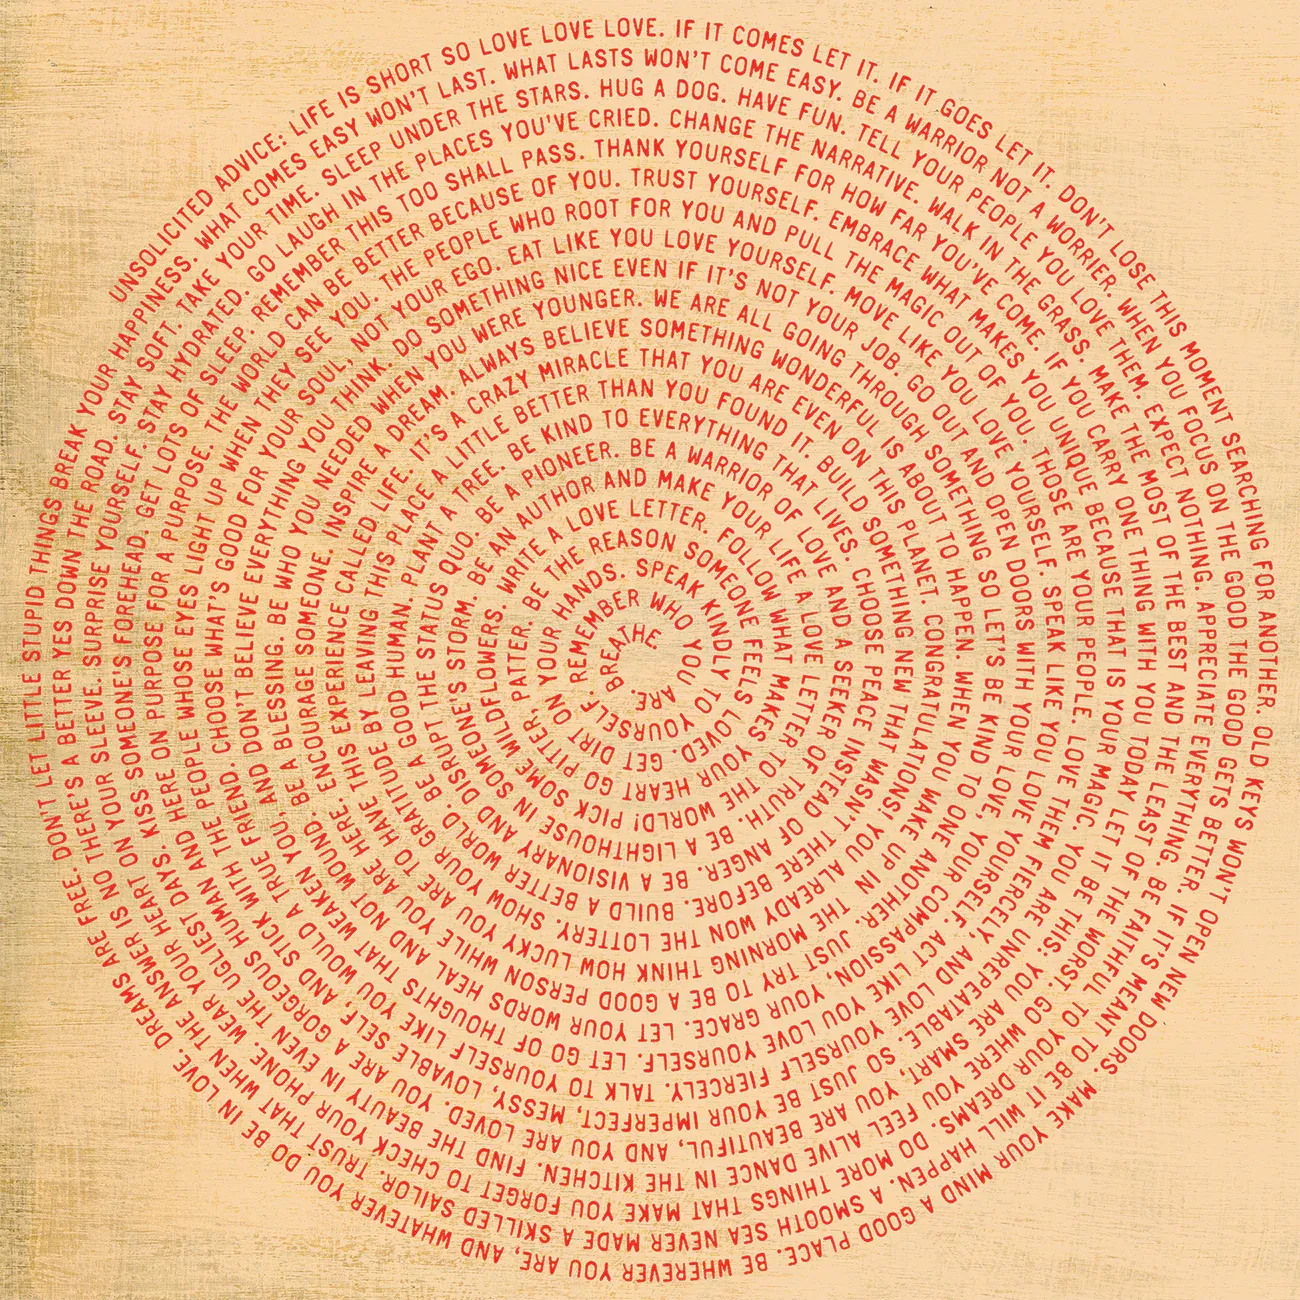 UNSOLICITED ADVICE: LIFE IS SHORT SO LOVE LOVE LOVE. IF IT COMES LET IT. IF IT GOES LET IT. DON'T LOSE THIS MOMENT SEARCHING FOR ANOTHER. OLD KEYS WON'T OPEN NEW DOORS. MAKE YOUR MIND A GOOD PLACE. BE WHEREVER YOU ARE, AND WHATEVER YOU DO BE IN LOVE. DREAMS ARE FREE. DON'T LET LITTLE STUPID THINGS BREAK YOUR HAPPINESS.
WHAT COMES EASY WON'T LAST. WHAT LASTS WON'T COME EASY. BE A WARRIOR NOT A WORRIER. WHEN YOU FOCUS ON THE GOOD THE GOOD GETS BETTER. IF IT'S MEANT TO BE IT WILL HAPPEN. A SMOOTH SEA NEVER MADE A SKILLED SAILOR. TRUST THAT WHEN THE ANSWER IS NO THERE'S A BETTER YES DOWN THE ROAD. STAY SOFT.
TAKE YOUR TIME. SLEEP UNDER THE STARS. HUG A DOG. HAVE FUN. TELL YOUR PEOPLE YOU LOVE THEM. EXPECT NOTHING. APPRECIATE EVERYTHING. BE FAITHFUL TO YOUR DREAMS. DO MORE THINGS THAT MAKE YOU FORGET TO CHECK YOUR PHONE. WEAR YOUR HEART ON YOUR SLEEVE. SURPRISE YOURSELF. STAY HYDRATED.
GO LAUGH IN THE PLACES YOU'VE CRIED. CHANGE THE NARRATIVE. WALK IN THE GRASS. MAKE THE MOST OF THE BEST AND THE LEAST OF THE WORST. GO WHERE YOU FEEL ALIVE DANCE IN THE KITCHEN. FIND THE BEAUTY IN EVEN THE UGLIEST DAYS. KISS SOMEONE'S FOREHEAD. GET LOTS OF SLEEP.
REMEMBER THIS TOO SHALL PASS. THANK YOURSELF FOR HOW FAR YOU'VE COME. IF YOU CARRY ONE THING WITH YOU TODAY LET IT BE THIS: YOU ARE SMART, YOU ARE BEAUTIFUL, AND YOU ARE LOVED. YOU ARE A GORGEOUS HUMAN AND HERE ON PURPOSE FOR A PURPOSE.
THE WORLD CAN BE BETTER BECAUSE OF YOU. TRUST YOURSELF. EMBRACE WHAT MAKES YOU UNIQUE BECAUSE THAT IS YOUR MAGIC. YOU ARE UNREPEATABLE. SO JUST BE YOUR IMPERFECT, MESSY, LOVABLE SELF, AND STICK WITH THE PEOPLE WHOSE EYES LIGHT UP WHEN THEY SEE YOU.
THE PEOPLE WHO ROOT FOR YOU AND PULL THE MAGIC OUT OF YOU. THOSE ARE YOUR PEOPLE. LOVE THEM FIERCELY, AND LOVE YOURSELF FIERCELY. TALK TO YOURSELF LIKE YOU WOULD A TRUE FRIEND. CHOOSE WHAT'S GOOD FOR YOUR SOUL, NOT YOUR EGO.
EAT LIKE YOU LOVE YOURSELF. MOVE LIKE YOU LOVE YOURSELF. SPEAK LIKE YOU LOVE YOURSELF. ACT LIKE YOU LOVE YOURSELF. LET GO OF THOUGHTS THAT WEAKEN YOU, AND DON'T BELIEVE EVERYTHING YOU THINK.
DO SOMETHING NICE EVEN IF IT'S NOT YOUR JOB. GO OUT AND OPEN DOORS WITH YOUR LOVE, YOUR COMPASSION, YOUR GRACE. LET YOUR WORDS HEAL AND NOT WOUND. BE A BLESSING. BE WHO YOU NEEDED WHEN YOU WERE YOUNGER.
WE ARE ALL GOING THROUGH SOMETHING SO LET'S BE KIND TO ONE ANOTHER. JUST TRY TO BE A GOOD PERSON WHILE YOU ARE HERE. ENCOURAGE SOMEONE. INSPIRE A DREAM.
ALWAYS BELIEVE SOMETHING WONDERFUL IS ABOUT TO HAPPEN. WHEN YOU MAKE UP IN THE MORNING THINK HOW LUCKY YOU ARE TO HAVE THIS EXPERIENCE CALLED LIFE.
IT'S A CRAZY MIRACLE THAT YOU ARE EVEN ON THIS PLANET. CONGRATULATIONS! YOU ALREADY WON THE LOTTERY. SHOW YOUR GRATITUDE BY LEAVING THIS PLACE
A LITTLE BETTER THAN YOU FOUND IT. BUILD SOMETHING NEW THAT WASN'T THERE BEFORE. BUILD A BETTER WORLD. BE A GOOD HUMAN. PLANT A TREE.
BE KIND TO EVERYTHING THAT LIVES. CHOOSE PEACE INSTEAD OF ANGER. BE A VISIONARY AND DISRUPT THE STATUS QUO. BE A PIONEER.
BE A WARRIOR OF LOVE AND A SEEKER OF TRUTH. BE A LIGHTHOUSE IN SOMEONE'S STORM.
BE AN AUTHOR AND MAKE YOUR LIFE A LOVE LETTER TO THE WORLD! PICK SOME WILDFLOWERS.
WRITE A LOVE LETTER. FOLLOW WHAT MAKES YOUR HEART GO PITTER, PATTER.
BE THE REASON SOMEONE FEELS LOVED. GET DIRT ON YOUR HANDS.
SPEAK KINDLY TO YOURSELF.
REMEMBER WHO YOU ARE.
BREATHE.